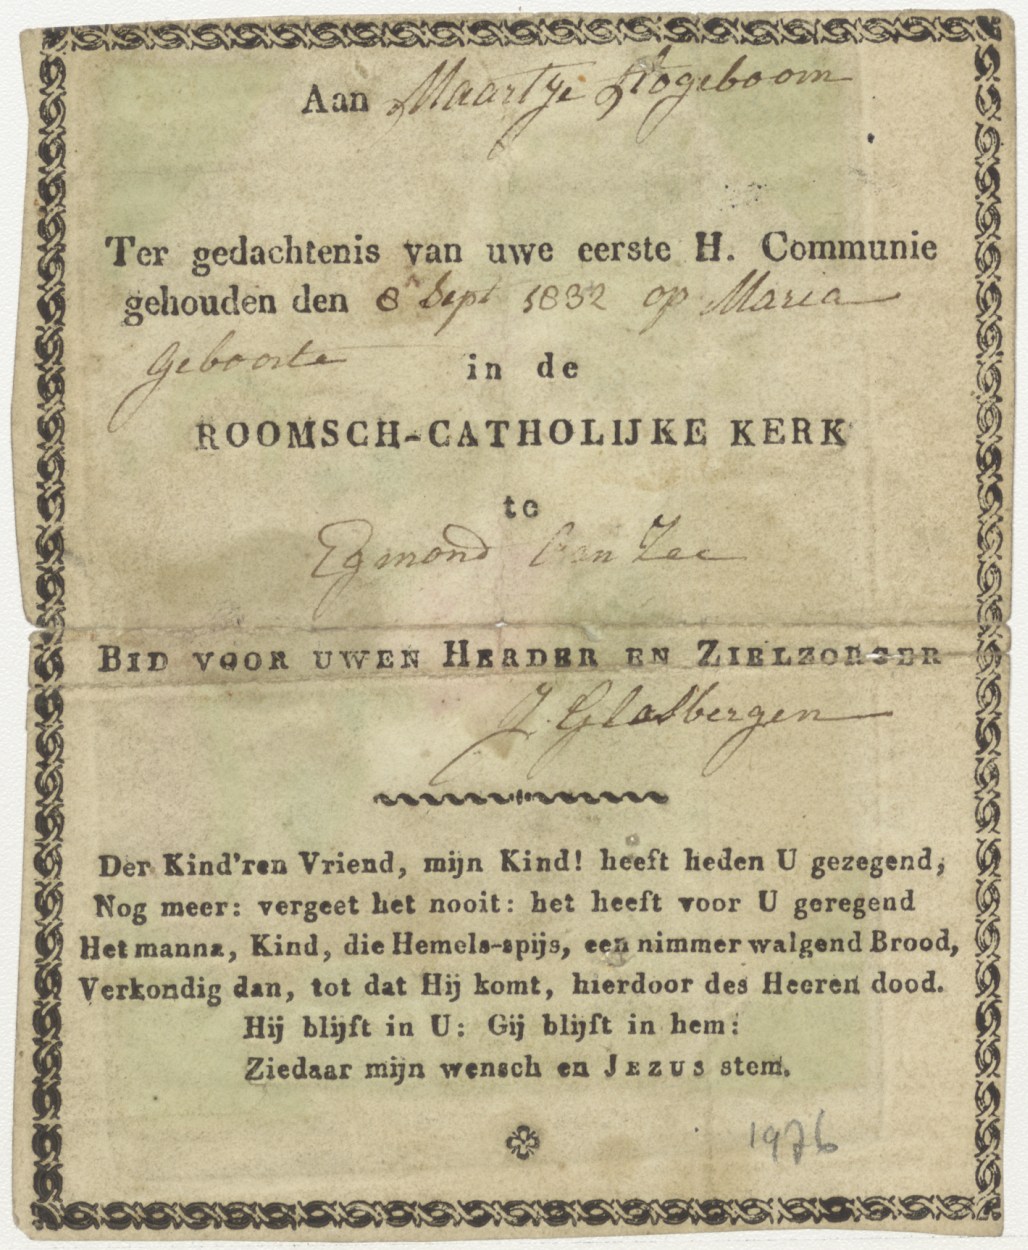 Aan Maartje Hogeboom
Ter gedachtenis van uwe eerste H. Communie
gehouden den 8n Sept 1832 op Maria
Geboorte in de
ROOMSCH-CATHOLIJKE KERK
te
Egmond Aan Zee
BID VOOR UWEN HERDER EN ZIELZORGER
J. Glasbergen
Der Kind'ren Vriend, mijn Kind! heeft heden U gezegend,
Nog meer: vergeet het nooit: het heeft voor U geregend
Het manna, Kind, die Hemels-spijs, een nimmer walgend Brood,
Verkondig dan, tot dat Hij komt, hierdoor des Heeren dood.
Hij blijft in U: Gij blijft in hem:
Ziedaar mijn wensch en JEZUS stem.
1976